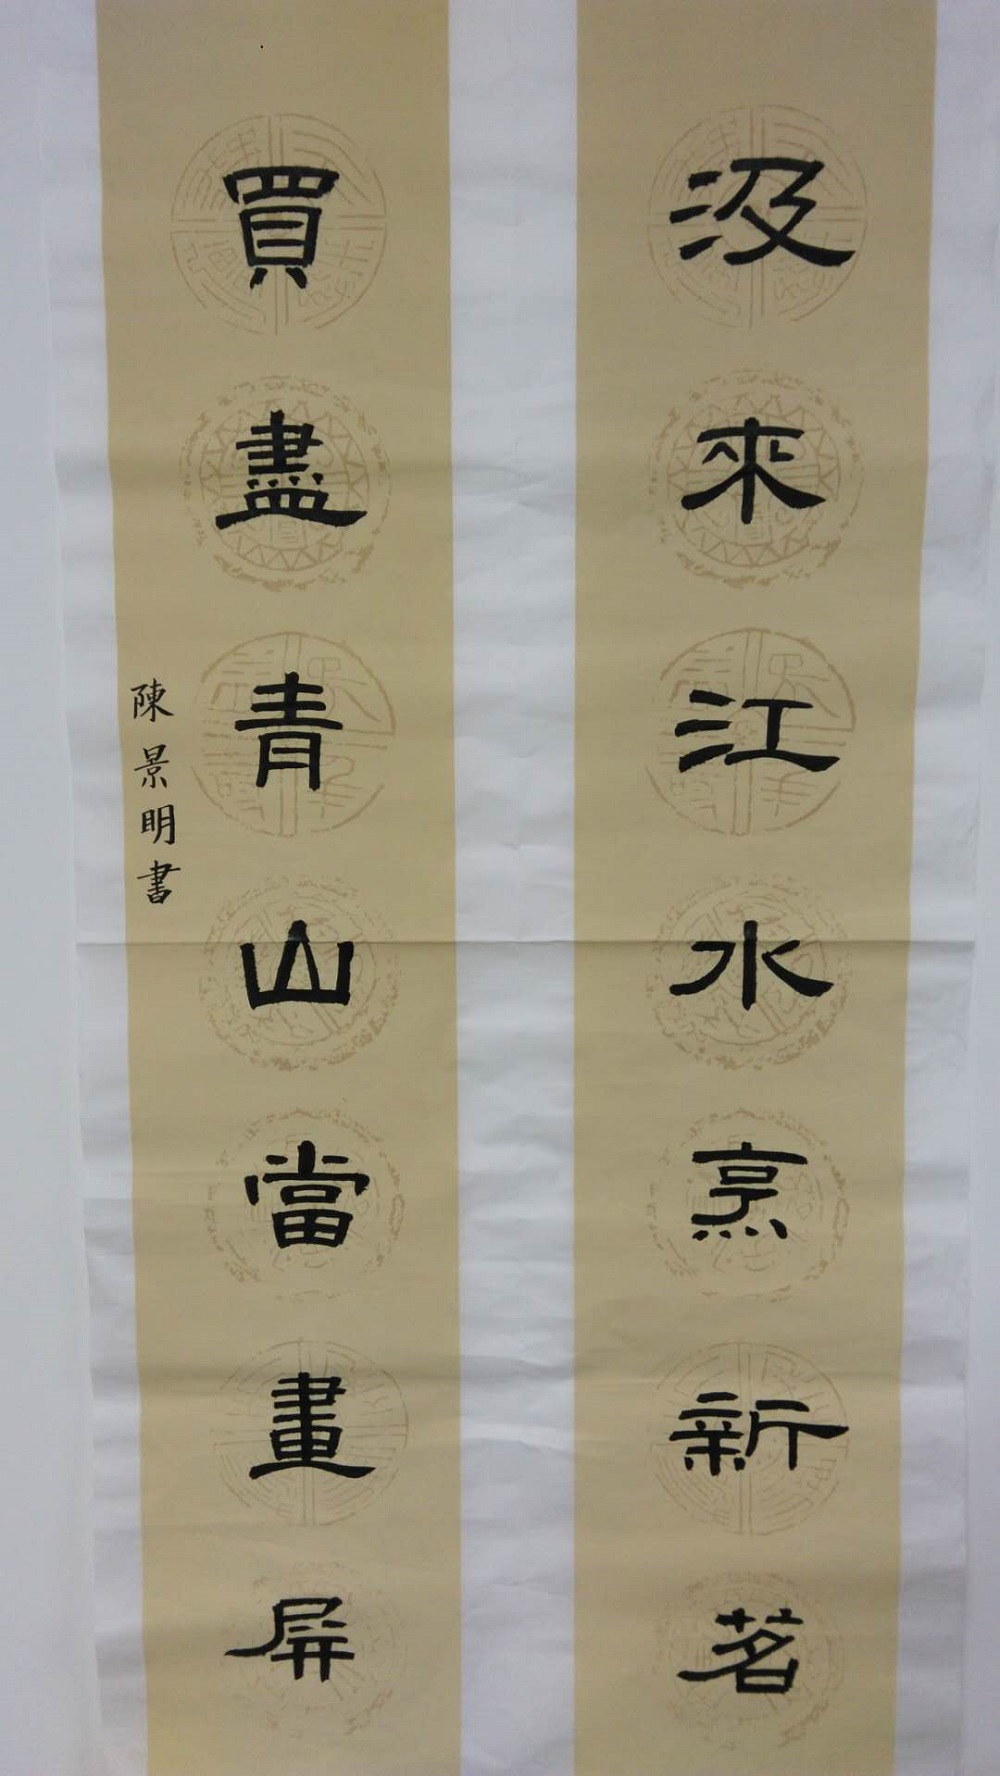 汲來江水烹新茗
買盡青山當畫屏
陳景明書